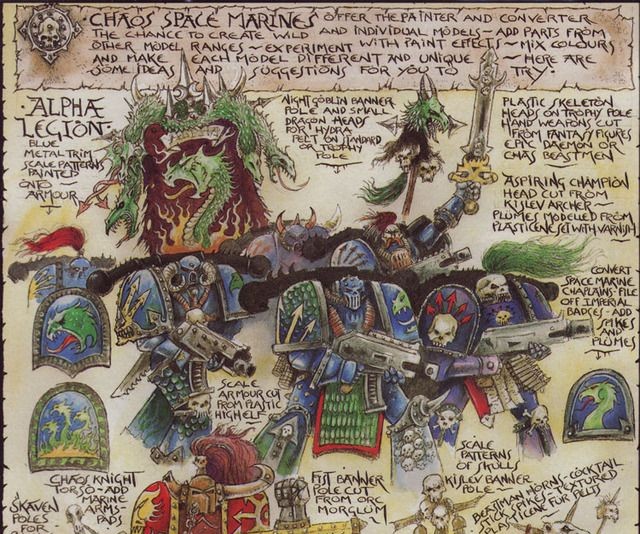 CHAOS SPACE MARINES OFFER THE PAINTER AND CONVERTER
THE CHANCE TO CREATE WILD AND INDIVIDUAL MODELS ~ ADD PARTS FROM
OTHER MODEL RANGES ~ EXPERIMENT WITH PAINT EFFECTS ~ MIX COLOURS
AND MAKE EACH MODEL DIFFERENT AND UNIQUE ~ HERE ARE
SOME IDEAS AND SUGGESTIONS FOR YOU TO TRY.
·ALPHA
LEGION·
BLUE
METAL TRIM
SCALE PATTERNS
PAINTED
ONTO
ARMOUR
NIGHT GOBLIN BANNER
POLE AND SMALL
DRAGON HEADS
FOR HYDRA
FELT ON STANDARD
OR TROPHY
POLE
PLASTIC SKELETON
HEADS ON TROPHY POLE
HAND WEAPONS CUT
FROM FANTASY FIGURES
EPIC DAEMON OR
CHAS BEASTMEN
ASPIRING CHAMPION
HEAD CUT FROM
KISLEV ARCHER ~
PLUMES MODELLED FROM
PLASTICENE SET WITH VARNISH
CONVERT
SPACE MARINE
CHAPLAINS FILE
OFF IMPERIAL
BADGES - ADD
SPIKES
AND
PLUMES
SCALE
ARMOUR CUT
FROM PLASTIC
HIGH ELF
SCALE
PATTERNS
OF SKULLS
CHAOS KNIGHT
TORSO - ADD
MARINE
ARMS-
PADS
FIST BANNER
POLE CUT
FROM ORC
MORGLUM
KISLEV BANNER
POLE
BEASTMAN HORNS - COCKTAIL
STICK SPIKES TEXTURED
FUR PELTS
SKAVEN
POLES
FOR